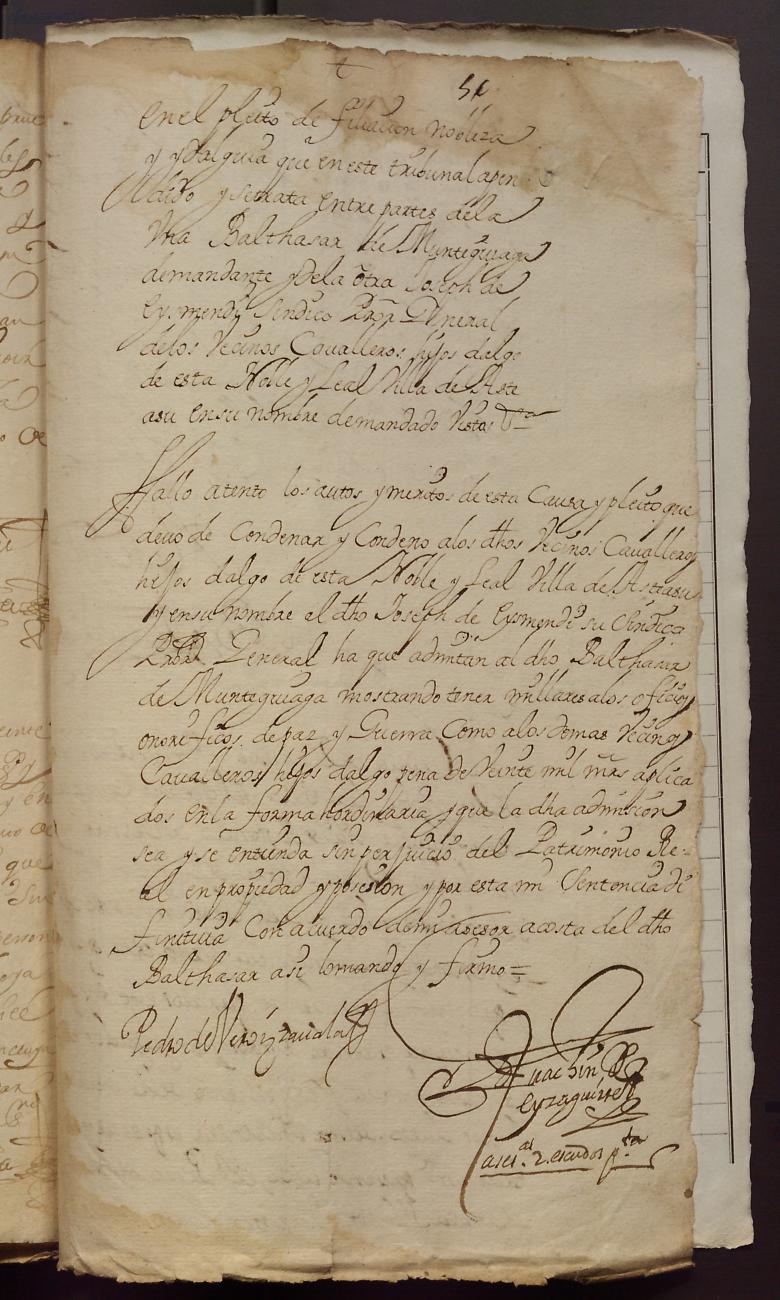 51
En el pleito de filiacion nobleza
y ydalguia que en este tribunal apen
dido y setrata entre partes dela
Vna Balthasar de Munteguiaga
demandante y dela otra Joseph de
Eysmendi sindico Pror General
delos Vecinos Cavalleros hijos dalgo
de esta Noble y Leal Villa de Asta
asu en su nombre demandado Vistos
Fallo atento los autos y meritos de esta Causa y pleito que
deuo de Condenar y Condeno alos dhos Vecinos Cavalleros
hijos dalgo de esta Noble y Leal Villa de Astasu
y en su nombre al dho Joseph de Eysmendi su Sindico
General ha que admitan al dho Balthasar
de Munteguiaga mostrando tener millares alos oficios
onorificos de paz y Guerra Como alos demas Vecinos
Cavalleros hijos dalgo pena de Veinte mil mrs aplica
dos en la forma hordinaria y que la dha admision
sea y se entienda sin perjuicio del Patrimonio Re=
al en propiedad y posesion y por esta mi Sentencia di
finitiua Con acuerdo de mi asesor acosta del dho
Balthasar asi lo mando y firmo =
Pedro de
Juachin
Eyzaguirre
ases. 2. escudos pta